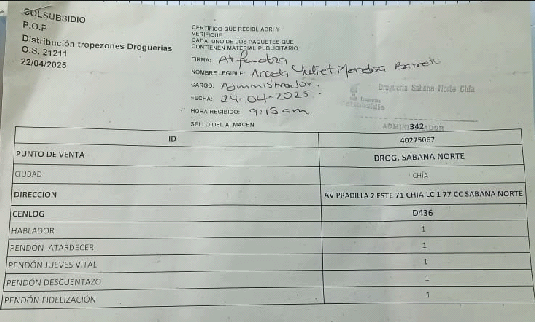 COLSUBSIDIO
P.O.P
Distribución tropezones Droguerias
O.S. 21211
22/04/2025
CERTIFICO QUE RECIBI, ABRI Y
VERIFIQUE
CADA UNO DE LOS PAQUETES QUE
CONTIENEN MATERIAL PUBLICITARIO
FIRMA:
NOMBRE
Mendoza
CARGO: Administrador.
FECHA: 24-04-2025.
HORA RECIBIDO: 9:15am
SELLO DEL ALMACEN
Drogueria Sabana Norte Chia
342
ID 40275067
PUNTO DE VENTA DROG. SABANA NORTE
CIUDAD CHÍA
DIRECCION AV PRADILLA 2 ESTE 71 CHIA LC 1 77 CC SABANA NORTE
CENLOG D136
HABLADOR 1
PENDON ATARDECER 1
PENDÓN JUEVES VITAL 1
PENDÓN DESCUENTAZO -
PENDÓN FIDELIZACIÓN 1